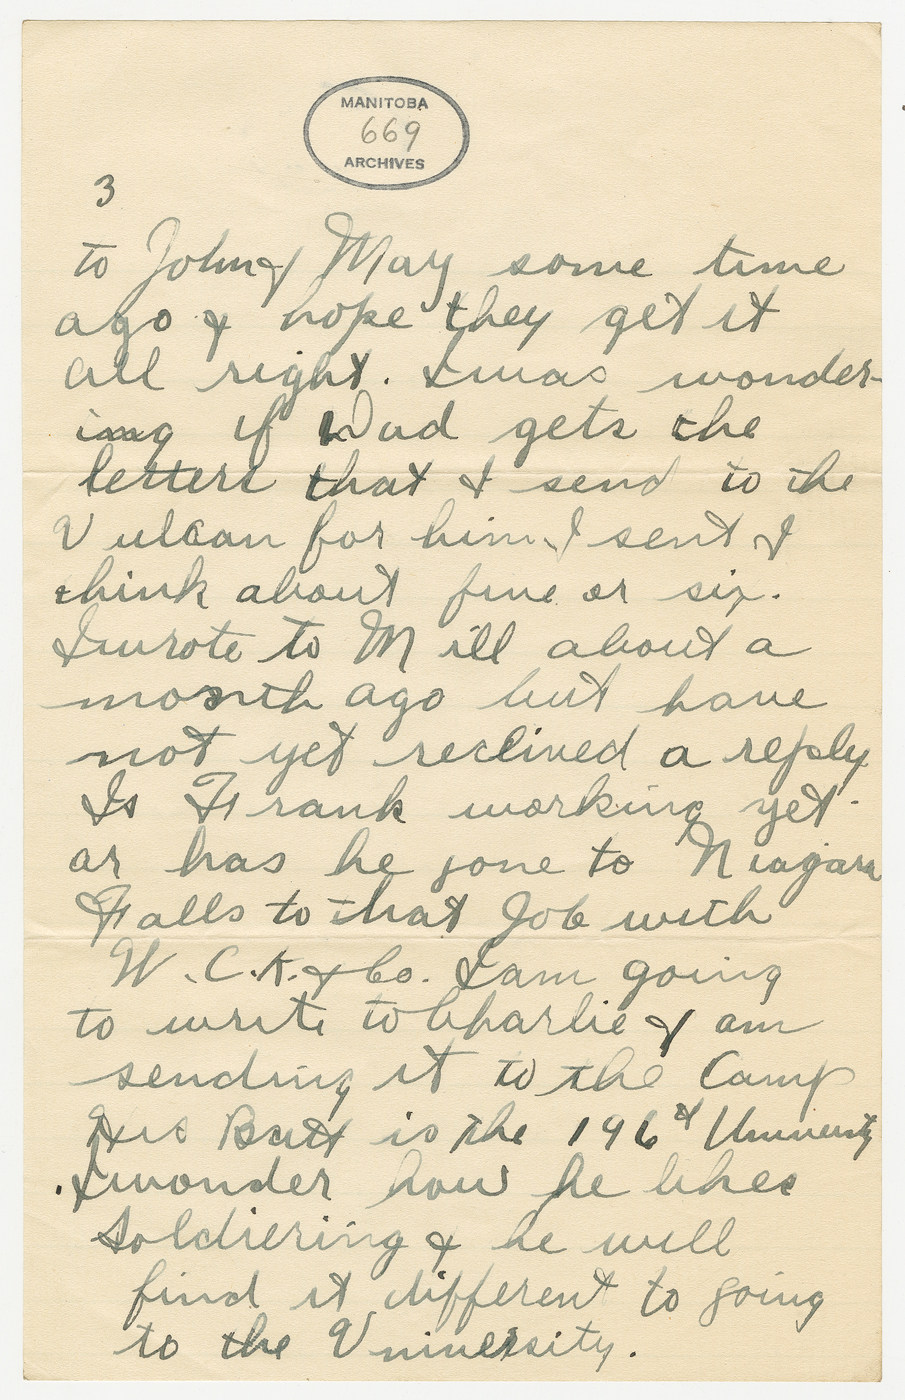 MANITOBA
669
ARCHIVES
3
to John & May some time
ago & hope they get it
all right. I was wonder-
ing if Dad gets the
letters that I send to the
Vulcan for him. I sent I
think about five or six.
I wrote to Mill about a
month ago but have
not yet recieved a reply
Is Frank working yet.
or has he gone to Niagara
Falls to that Job with
W.C.K. & Co. I am going
to write to Charlie & am
sending it to the Camp
His Batt is the 196th University
I wonder how he likes
Soldiering & he will
find it different to going
to the University.